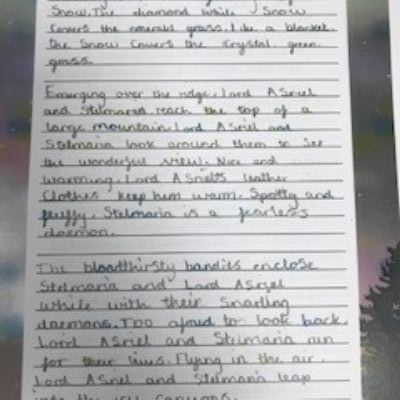 Snow. The diamond white Snow
covers the emerals grass. Like a blanket.
the snow covers the crystal green
grass.
Emerging over the ridge, Lord Asriel
and Stelmaria reach the top of a
large mountain. Lord Asriel and
Stelmaria look around them to see
the wonderful view. Nice and
warming. Lord Asriel's leather
Clothes keep him warm. Spotty and
fluffy. Stelmaria is a fearless
daemon.
The bloodthirsty bandits enclose
Stelmaria and Lord Asriel
while with their Snarling
daemons. Too afraid to look back.
Lord Asriel and Stelmaria run
for their lives. Flying in the air.
Lord Asriel and Stelmaria leap
into the icy canyons.